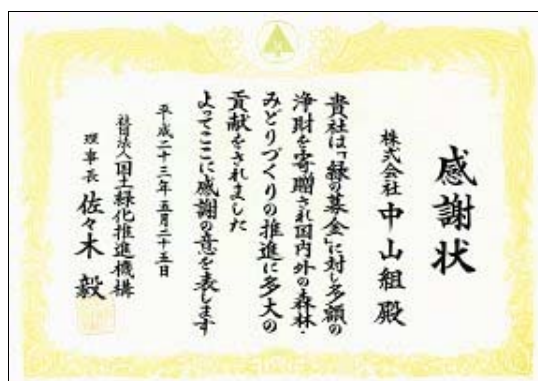 感謝状
株式会社 中山組 殿
貴社は「緑の募金」に対し多額の
浄財を寄贈され国内外の森林・
みどりづくりの推進に多大の
貢献をされました
よってここに感謝の意を表します
平成二十三年五月二十五日
社団法人国土緑化推進機構
理事長 佐々木 毅